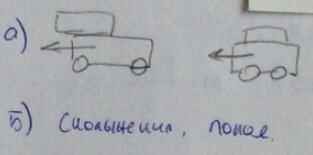 а)
б) Скольжения, покоя.